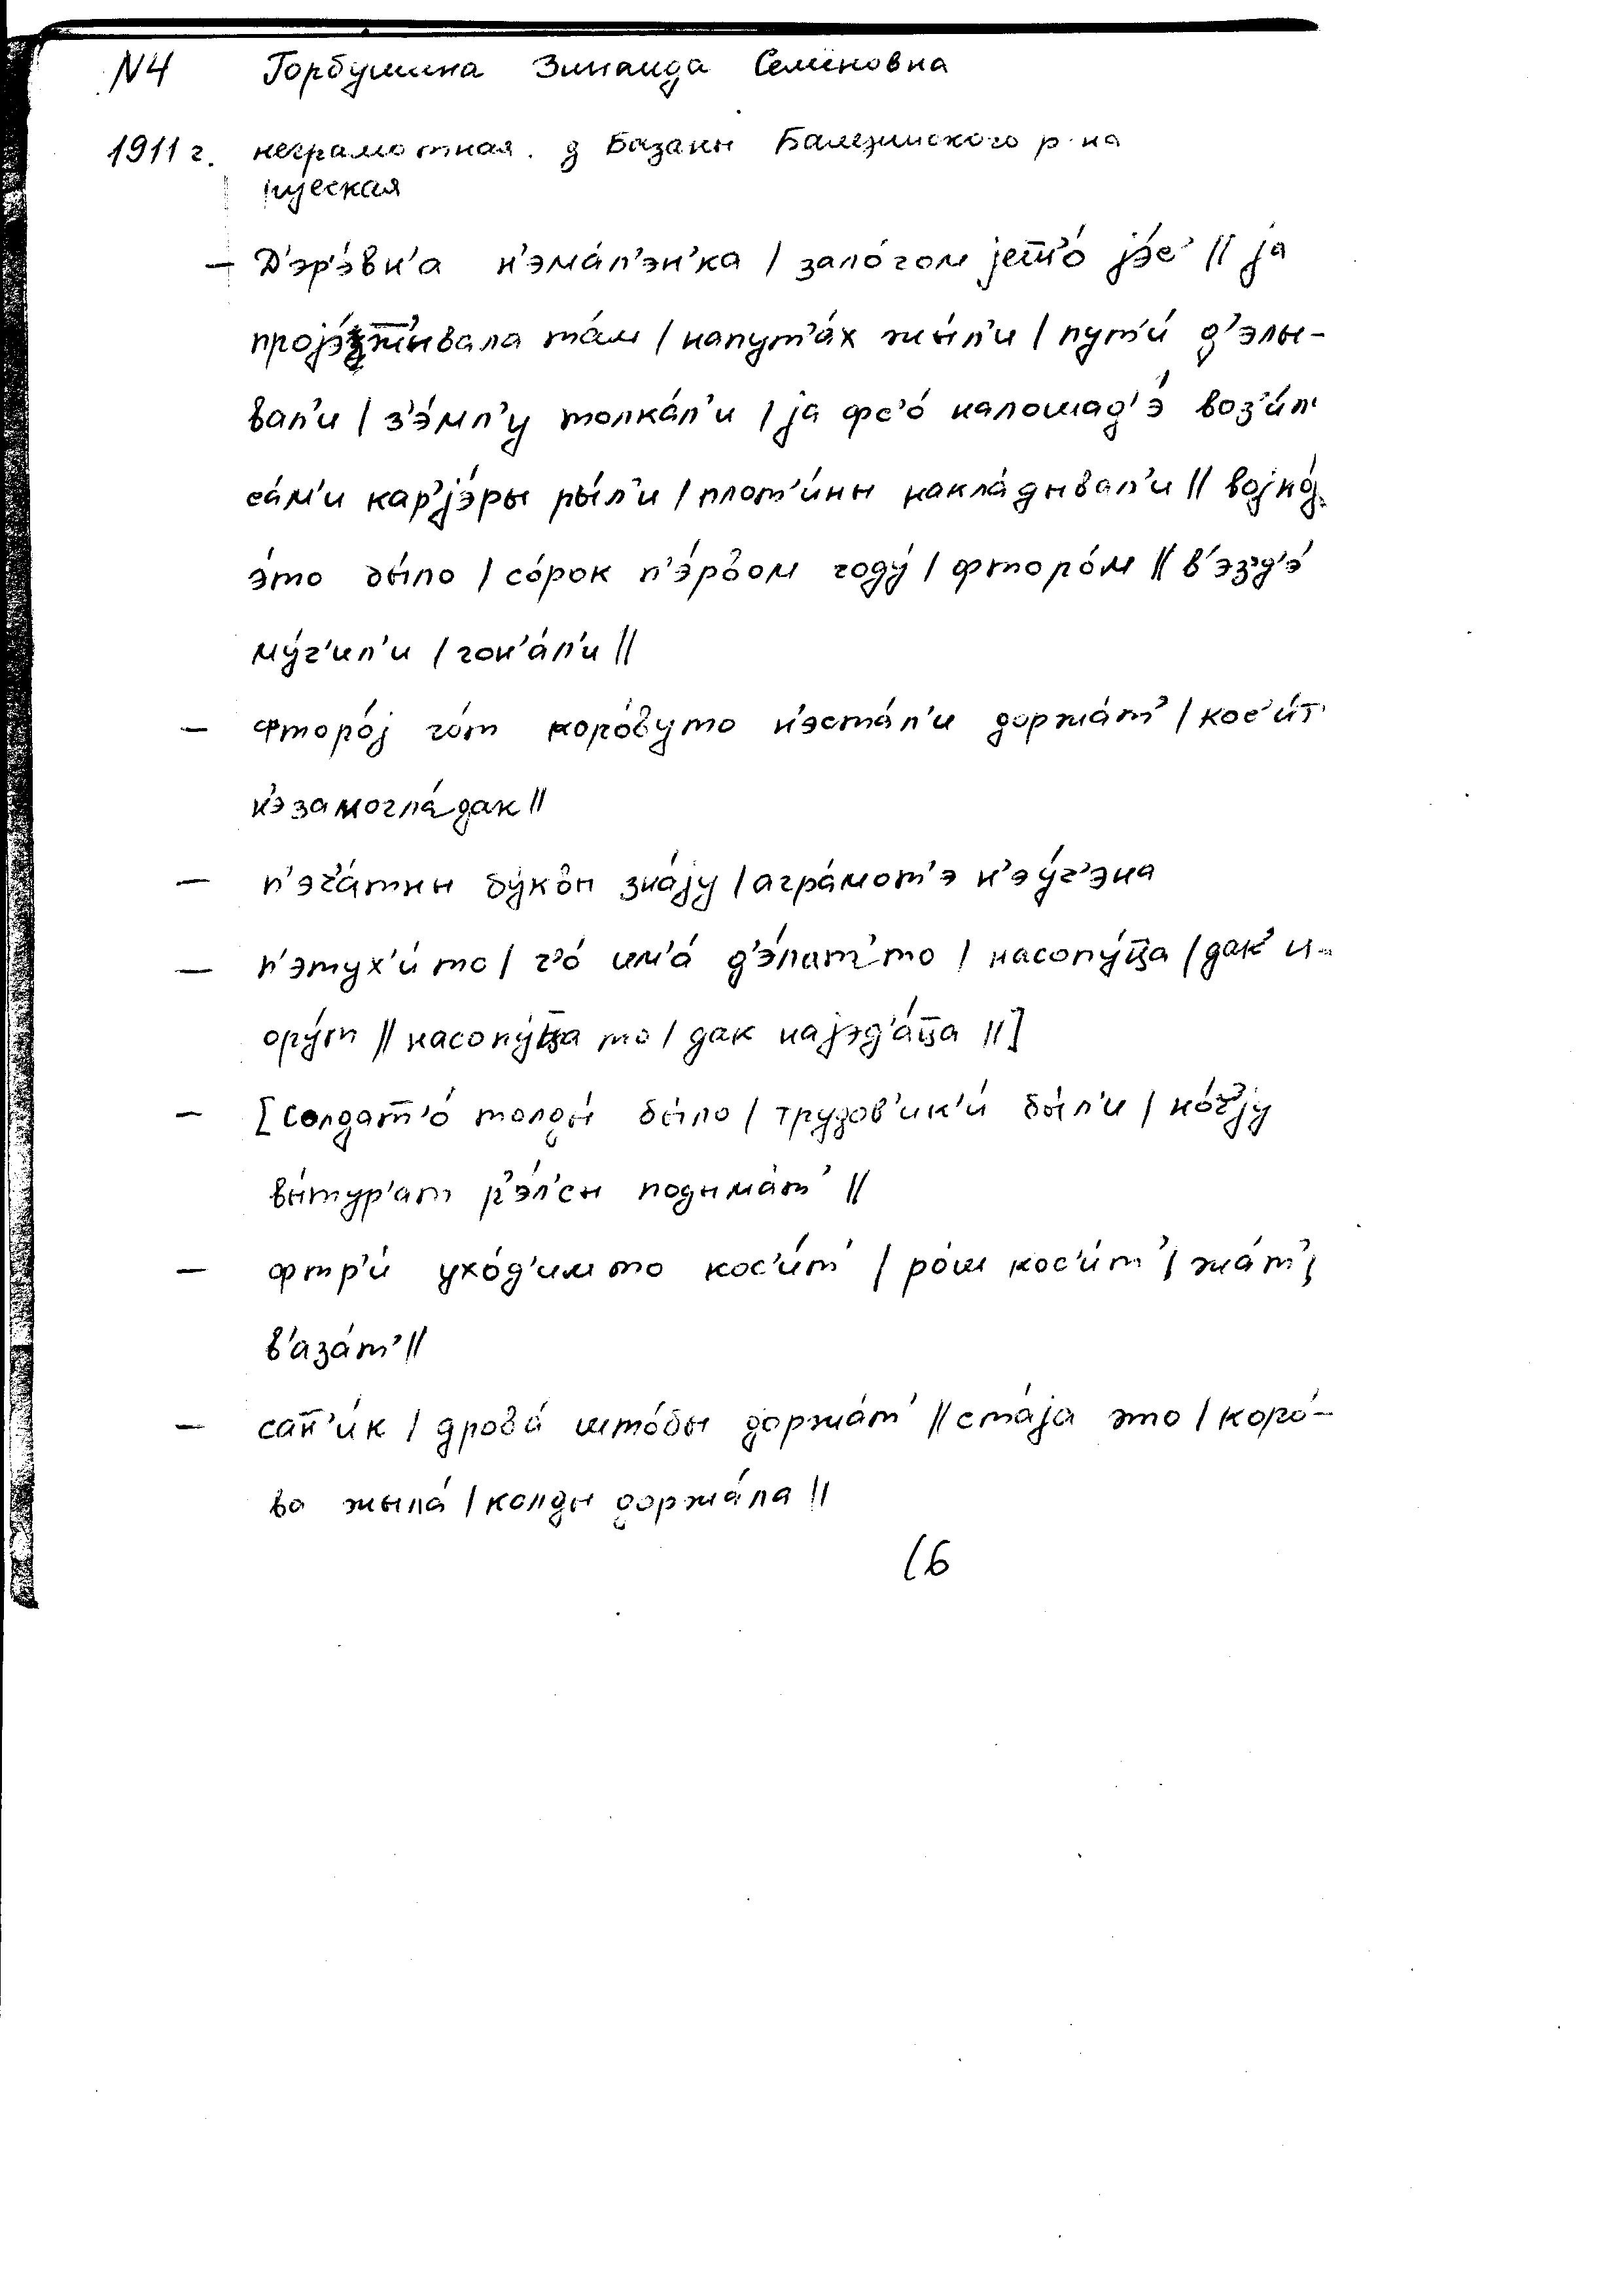 N4 Горбушина Зинаида Семёновна
1911 г. неграмотная. д Базаны Балезинского р-на
русская
– Д'эр'э́вн'а н'эма́л'эн'ка / зало́гом јет̅'о́ јэ́с' // ја
проје́ж̅ывала та́м / напут'а́х жы́л'и / пут'и́ д'элы-
вал'и / з'э́мл'у толка́л'и / ја фс'о́ налошад'э́ воз'и́л'
са́м'и кар'јэ́ры ры́л'и / плот'и́ны накла́дывал'и // војно́ј
э́то бы́ло / со́рок п'э́рвом году́ / фторо́м // в'эз'д'э́
му́ч'ил'и / гон'а́л'и //
– фторо́ј го́т коро́вуто н'эста́л'и доржа́т' / кос'и́т'
н'эзамогла́дак //
– п'эч'а́тны бу́коў зна́ју / агра́мот'э н'эу́ч'эна
– п'этух'и́ то / ч'о́ им'а́ д'э́лат'то / насопу́ц̅а / дак и
ору́т // насопу́ц̅а то / дак најэд'а́ц̅а //]
– [солдат̅'о́ толды́ бы́ло / трудов'ик'и́ бы́л'и / но́ч'ју
вы́тур'ат р'э́л'сы подыма́т' //
– фтр'и́ ухо́д'имто кос'и́т' / ро́ш кос'и́т' / жа́т' /
в'аза́т' //
– сап̅'и́к / дрова́ што́бы доржа́т' // ста́ја это / коро́-
ва жыла́ / колды доржа́ла //
(6